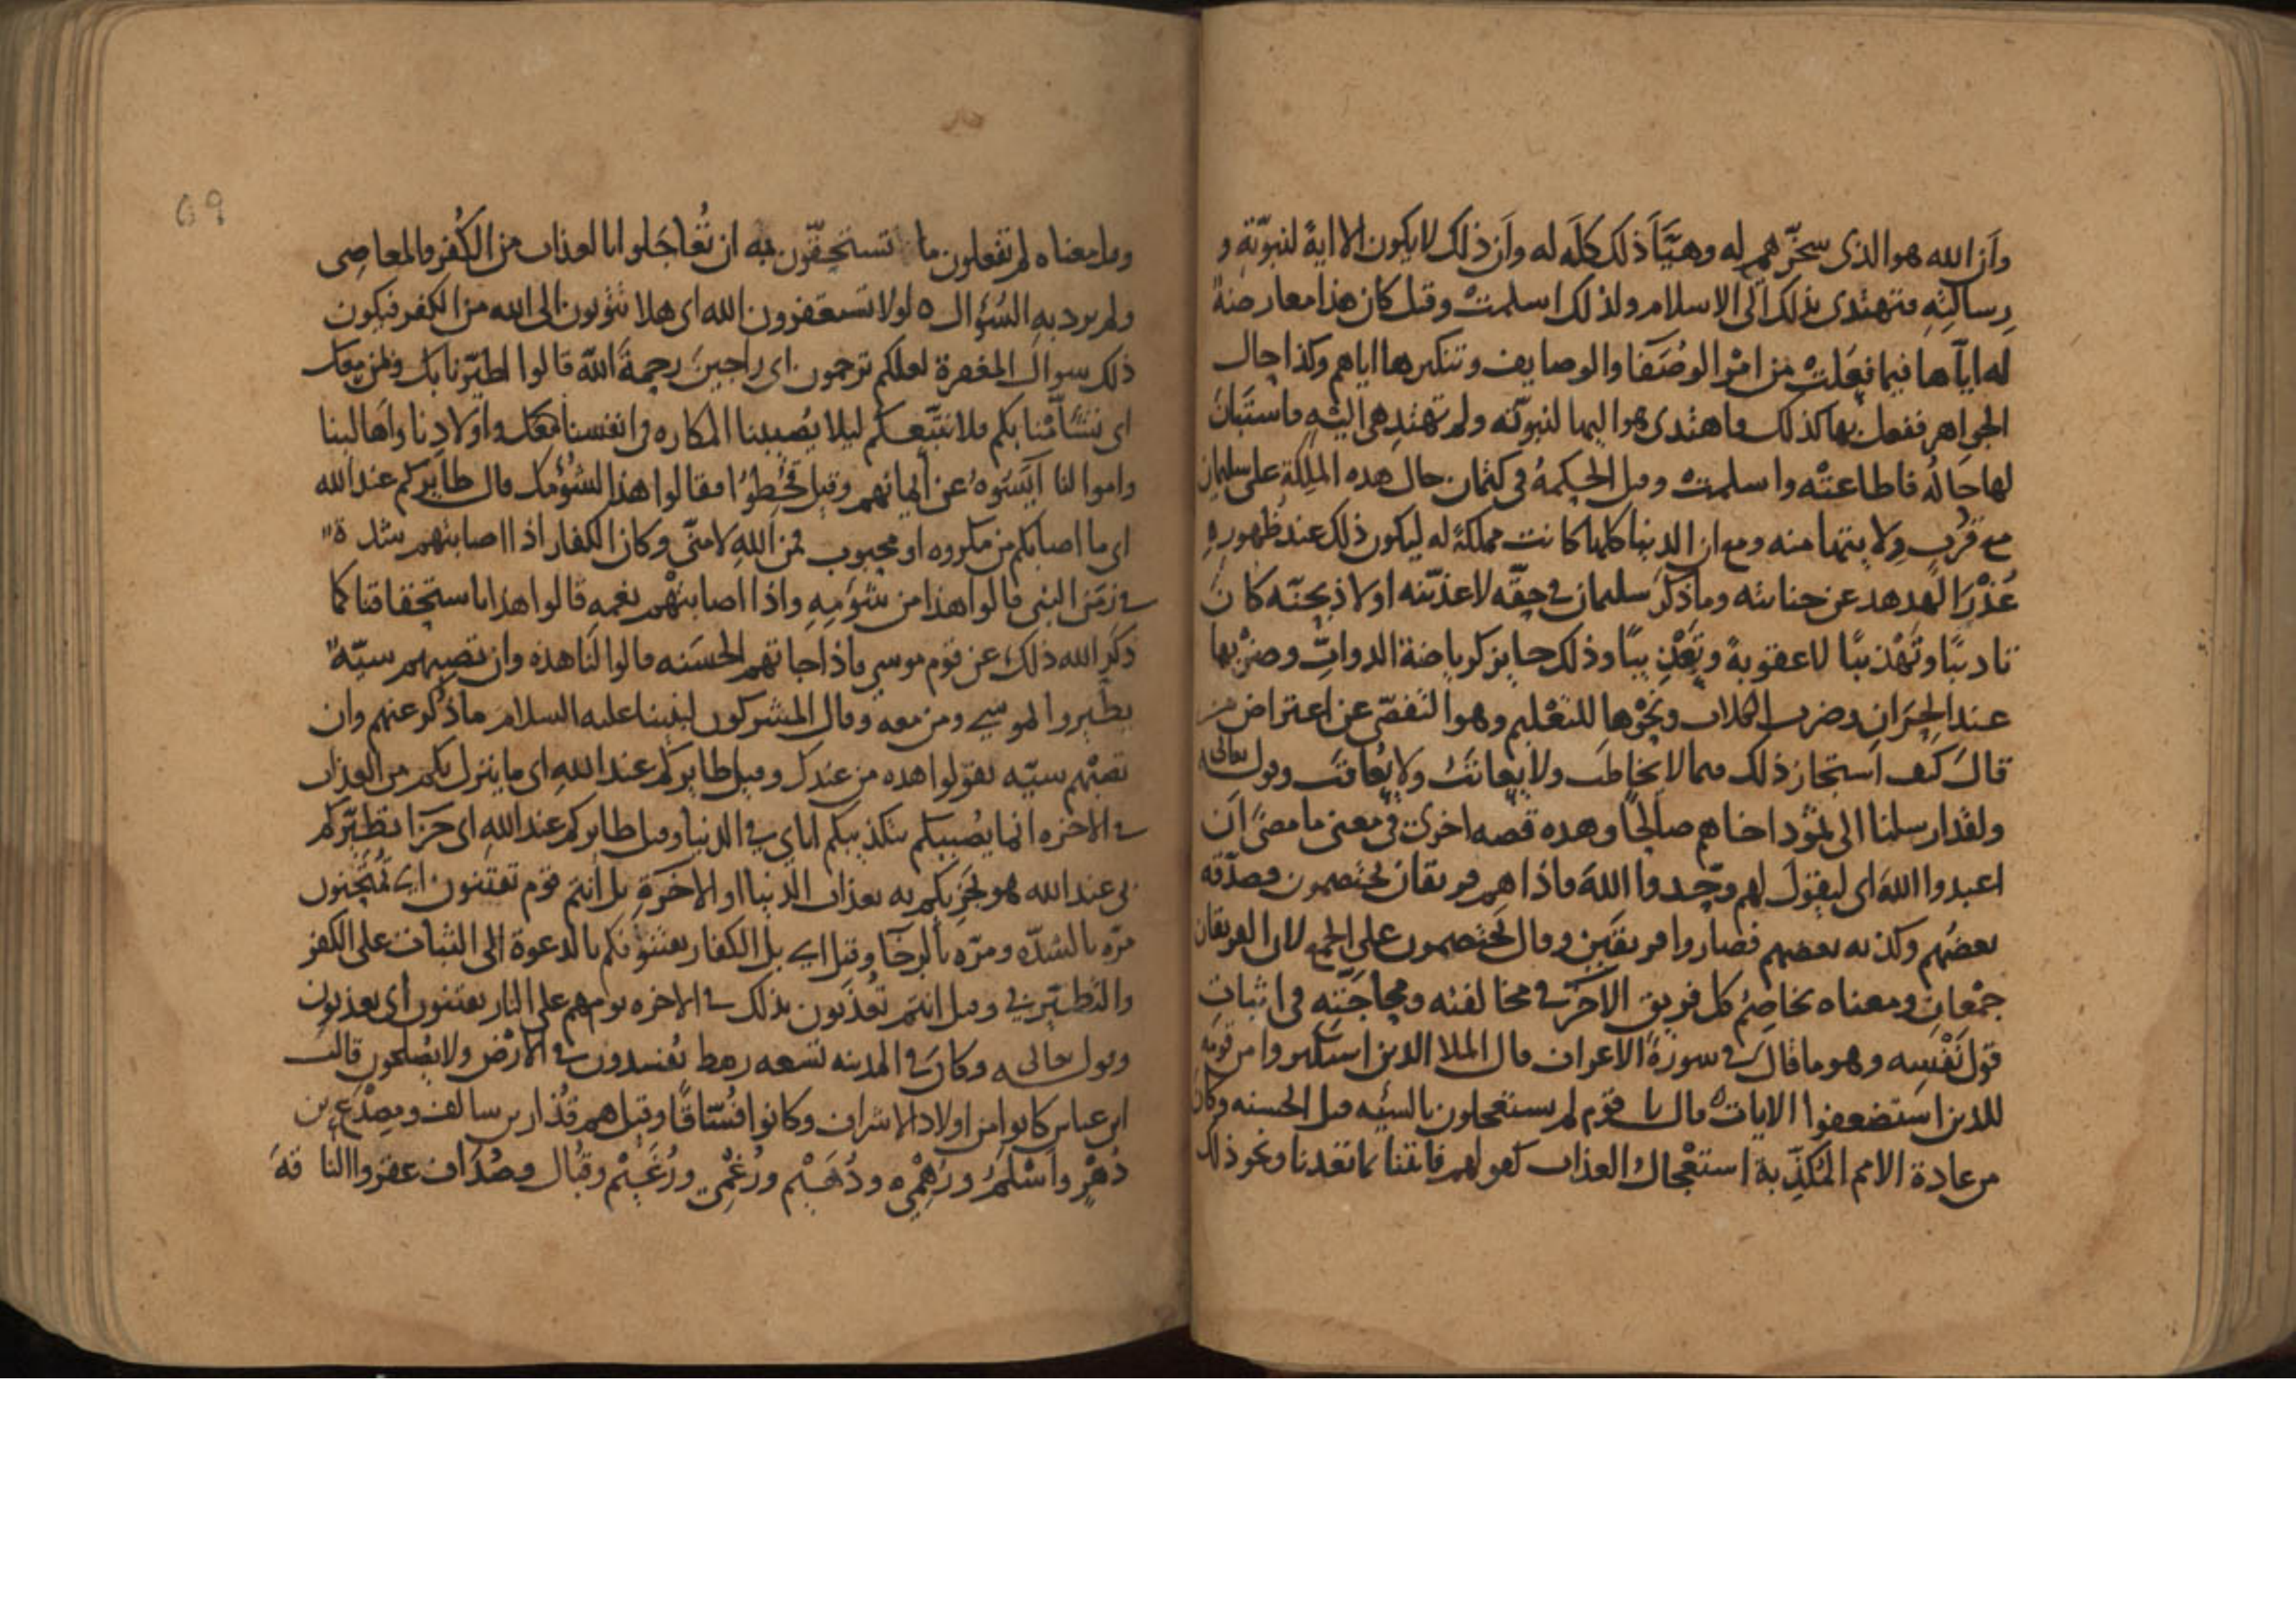 وأن الله هو الذى سخّرهم له وهيّأ ذلك كلّه له وأن ذلك لا يكون الا اية لنبوّته و
رسالته فتهتدى بذلك الى الاسلام ولذلك اسلمت وقيل كان هذا معارضة
له اياها فيما فعلت من امر الوصفا والوصايف وتنكيرها اياهم وكذا حال
الجواهر ففعل بها كذلك فاهتدى هو اليها لنبوّته ولم تهتد هى اليه فاستبان
لها حاله فاطاعته واسلمت وقيل الحكمة فى كتمان حال هذه الملكة على سليمان
مع قرب ولايتها منه ومع ان الدنيا كلها كانت مملكة له ليكون ذلك عند ظهوره
عذر الهدهد عن جنايته وما ذكر سليمان فى حقّه لاعذّبنه او لاذبحنّه كان
تاديبًا وتهذيبًا لا عقوبة وتعذيبًا وذلك جايز كرياضة الدوابّ وضربها
عند الحران وضرب الكلاب ونحوها للتعليم وهو التفصّى عن اعتراض من
قال كيف استجاز ذلك مما لا يخاطب ولا يعاتب ولا يعاقب وقوله تعالى
ولقد ارسلنا الى ثمود اخاهم صالحًا وهذه قصه اخرى فى معنى ما مضى أن
اعبدوا الله اى ليقول لهم وحّدوا الله فاذا هم فريقان يختصمون فصدّقه
بعضهم وكذبه بعضهم فصاروا فريقين وقال يختصمون على الجمع لان الفريقان
جمعان ومعناه يخاصم كل فريق الآخر فى مخالفته ومحاجّته فى اثبات
قول نفسه وهو ما قال فى سورة الاعراف قال الملا الذين استكبروا من قومه
للذين استضعفوا الايات قال يا قوم لم تستعجلون بالسيّه قبل الحسنه وكان
من عادة الامم المكذّبة استعجال العذاب كقولهم فاتنا بما تعدنا ونحو ذلك
69
وقيل معناه لم تفعلون ما تستحقّون به ان تُعاجَلوا بالعذاب من الكفر والمعاصى
ولم يرد به السؤال لولا تستغفرون الله اى هلا تتوبون الى الله من الكفر فيكون
ذلك سوال المغفرة لعلكم ترحمون اى راجين رحمة الله قالوا اطيّرنا بك وبمن معك
اى تشأّمنا بكم فلا نتّبعكم ليلا يصيبنا المكاره فى انفسنا معك واولادنا واهالينا
واموالنا آيسوه عن ايمانهم وقيل قحطوا فقالوا هذا لشؤمك قال طايركم عند الله
اى ما اصابكم من مكروه او محبوب فمن الله لا منّى وكان الكفار اذا اصابتهم شدة
فى زمن النبى قالوا هذا من شؤمه واذا اصابتهم نعمه قالوا هذا باستحقاقنا كما
ذكر الله ذلك عن قوم موسى فاذا جاتهم الحسنه قالوا لنا هذه وان تصبهم سيّه
يطّيروا بموسى ومن معه وقال المشركون لنبينا عليه السلام ما ذكر عنهم وان
تصبهم سيّه يقولوا هذه من عندك وقيل طايركم عند الله اى ما ينزل بكم من العذاب
فى الاخره انما يصيبكم بتكذيبكم اياى فى الدنيا وقيل طايركم عند الله اى جزا تطيّركم
بى عند الله هو يجزيكم به بعذاب الدنيا او الاخرة بل أنتم قوم تفتنون اى تمتحنون
مرّه بالشدّه ومرّه بالرخآ وقيل اى بل الكفار يفتنونكم بالدعوة الى الثبات على الكفر
والتطيّر بى وقيل انتم تعذّبون بذلك فى الاخره يوم هم على النار يفتنون أى يعذبون
وقوله تعالى وكان فى المدينه تسعه رهط يفسدون فى الارض ولا يصلحون قال
ابن عباس كانوا من اولاد الاشراف وكانوا فسّاقًا وقيل هم قُذار بن سالف ومصدع بن
دهر واسلم ورهمى ودهيم ورعمى ورعيم وقبال وصداف عقروا النا قة